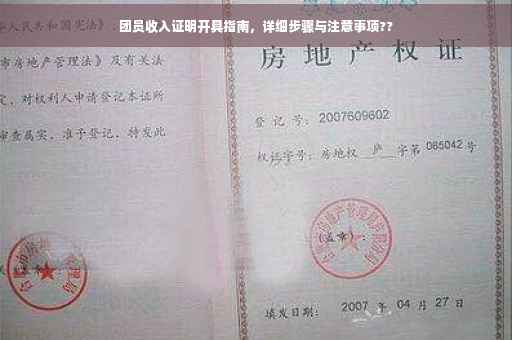 团员收入证明开具指南，详细步骤与注意事项??
华人民共和国宪法》
市房地产管理法》及有关法
定，对权利人申请登记本证所
审查属实，准予登记，特发此
房地产权证
登记号：2007609602
权证字号：房地权 庐 字第 065042 号
(盖章)：
填发日期：2007 年 04 月 27 日